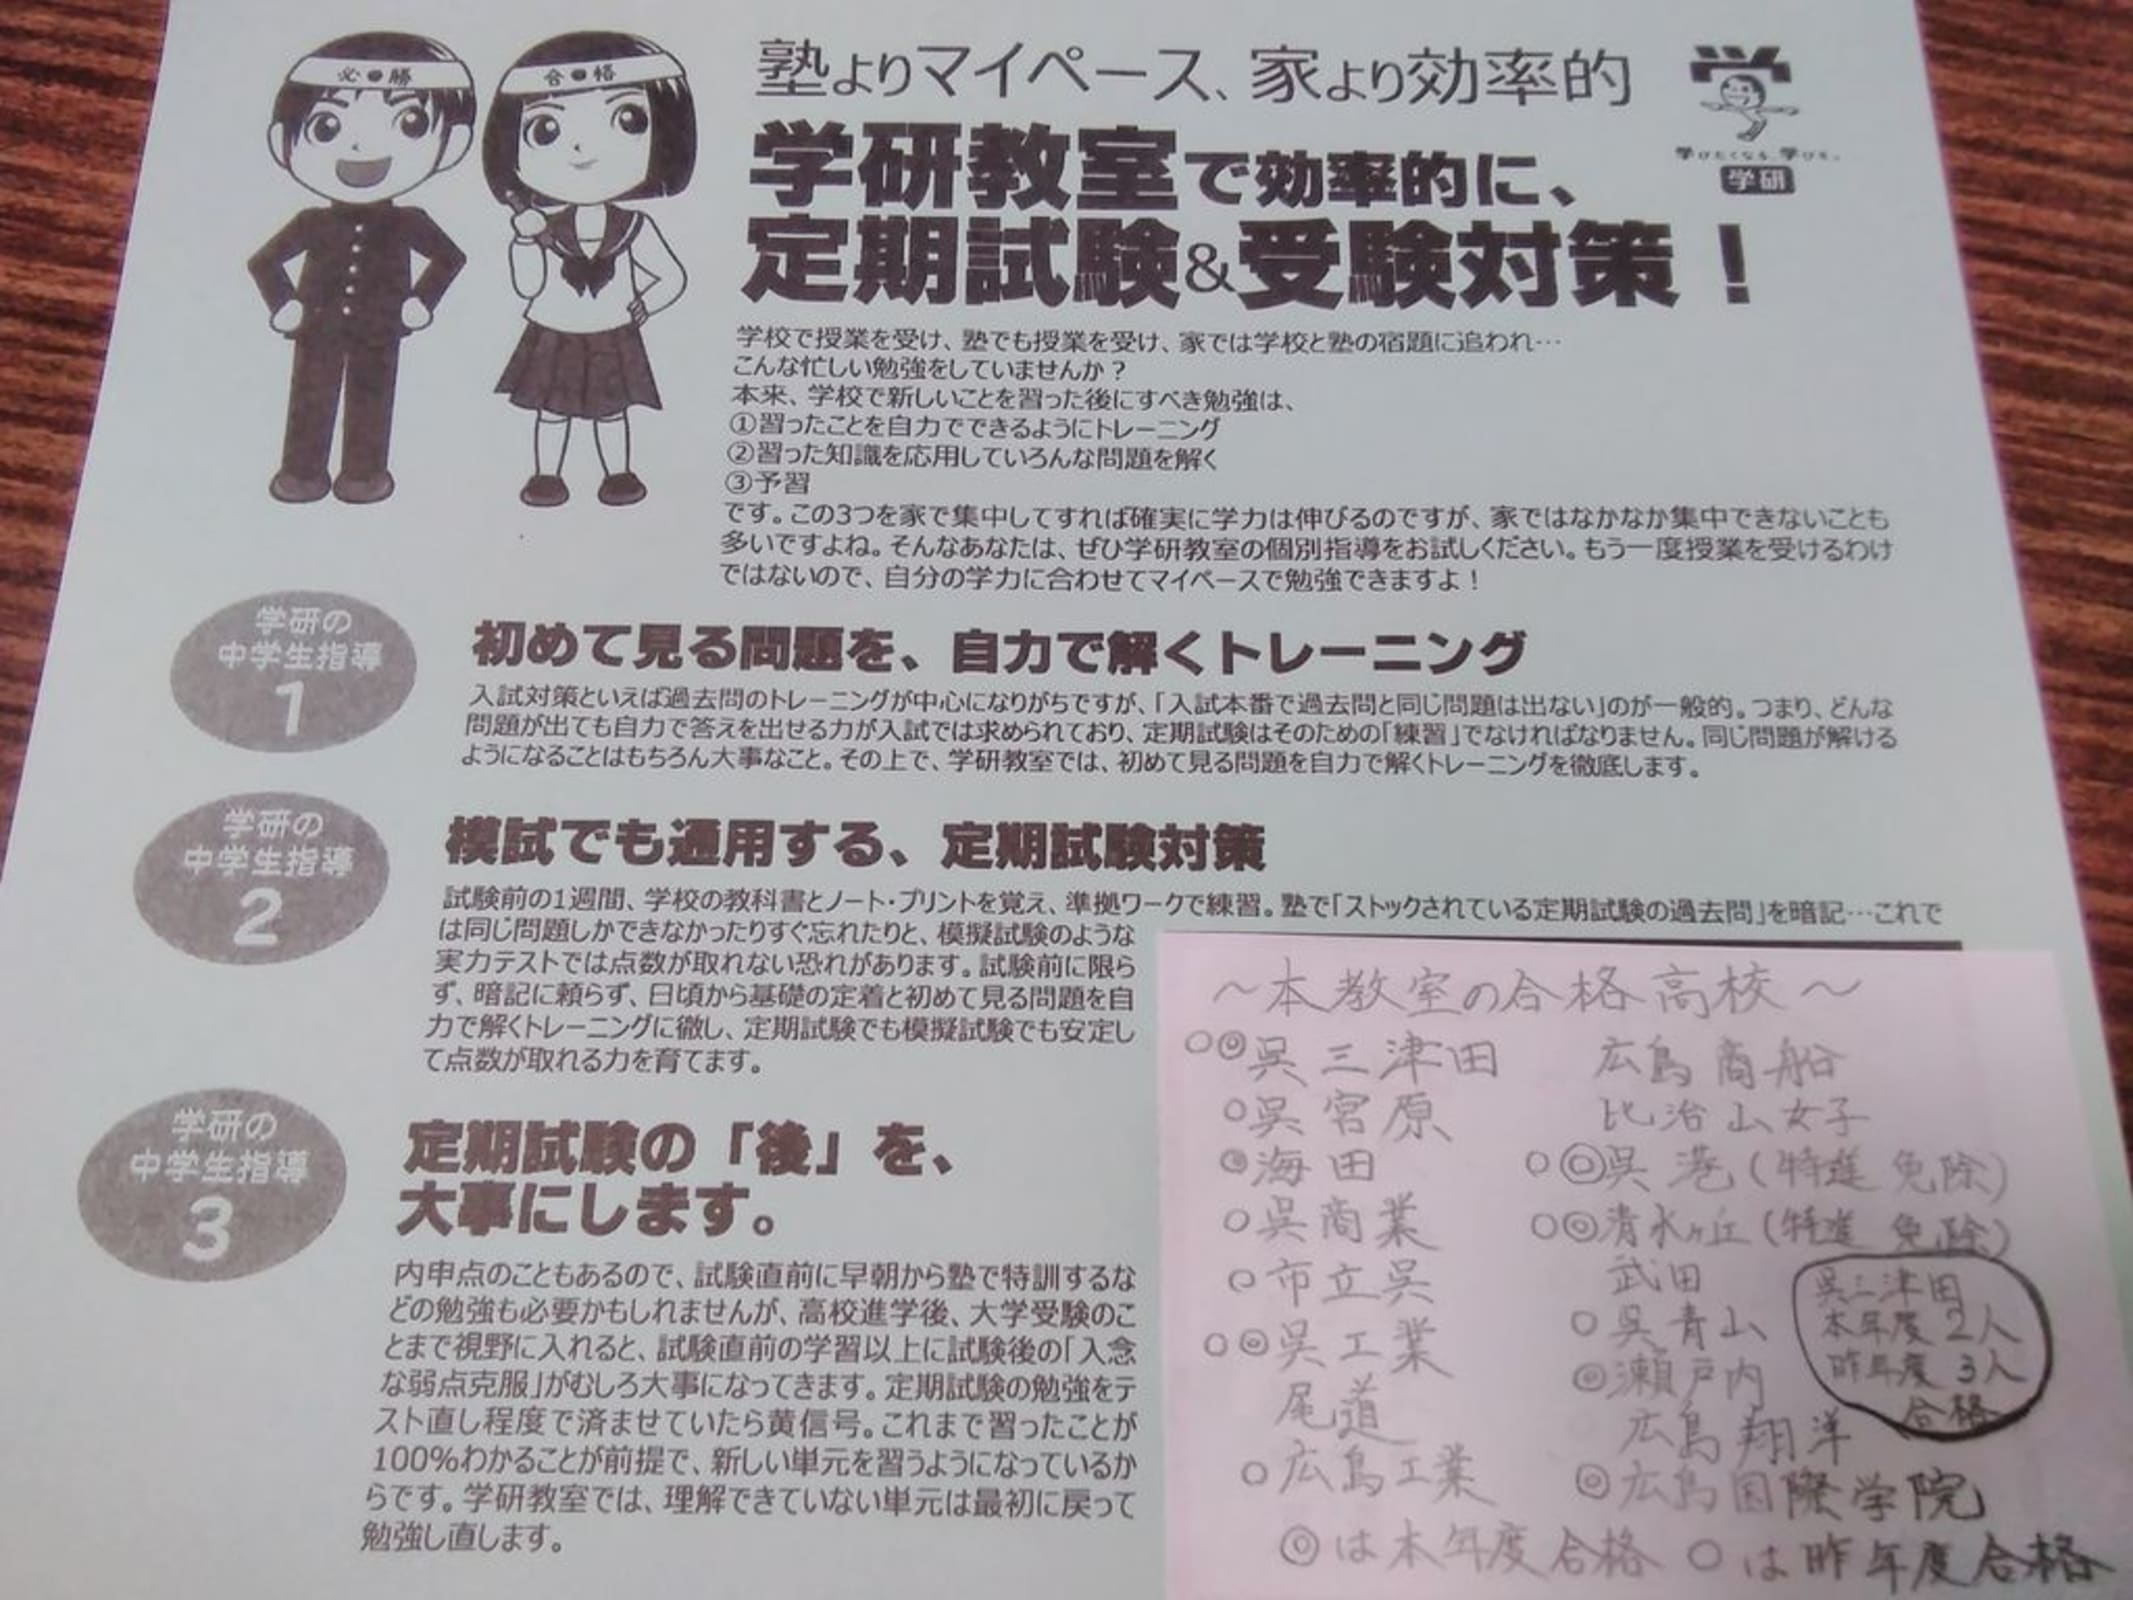 必勝
合格
塾よりマイペース、家より効率的
学研教室で効率的に、
定期試験&受験対策！
学びたくなる、学びを。
学研
学校で授業を受け、塾でも授業を受け、家では学校と塾の宿題に追われ…
こんな忙しい勉強をしていませんか？
本来、学校で新しいことを習った後にすべき勉強は、
①習ったことを自力でできるようにトレーニング
②習った知識を応用していろんな問題を解く
③予習
です。この3つを家で集中してすれば確実に学力は伸びるのですが、家ではなかなか集中できないことも
多いですよね。そんなあなたは、ぜひ学研教室の個別指導をお試しください。もう一度授業を受けるわけ
ではないので、自分の学力に合わせてマイペースで勉強できますよ！
学研の
中学生指導
1
初めて見る問題を、自力で解くトレーニング
入試対策といえば過去問のトレーニングが中心になりがちですが、「入試本番で過去問と同じ問題は出ない」のが一般的。つまり、どんな
問題が出ても自力で答えを出せる力が入試では求められており、定期試験はそのための「練習」でなければなりません。同じ問題が解ける
ようになることはもちろん大事なこと。その上で、学研教室では、初めて見る問題を自力で解くトレーニングを徹底します。
学研の
中学生指導
2
模試でも通用する、定期試験対策
試験前の1週間、学校の教科書とノート・プリントを覚え、準拠ワークで練習。塾で「ストックされている定期試験の過去問」を暗記…これで
は同じ問題しかできなかったりすぐ忘れたりと、模擬試験のような
実力テストでは点数が取れない恐れがあります。試験前に限ら
ず、暗記に頼らず、日頃から基礎の定着と初めて見る問題を自
力で解くトレーニングに徹し、定期試験でも模擬試験でも安定し
て点数が取れる力を育てます。
学研の
中学生指導
3
定期試験の「後」を、
大事にします。
内申点のこともあるので、試験直前に早朝から塾で特訓するな
どの勉強も必要かもしれませんが、高校進学後、大学受験のこ
とまで視野に入れると、試験直前の学習以上に試験後の「入念
な弱点克服」がむしろ大事になってきます。定期試験の勉強をテ
スト直し程度で済ませていたら黄信号。これまで習ったことが
100%わかることが前提で、新しい単元を習うようになっているか
らです。学研教室では、理解できていない単元は最初に戻って
勉強し直します。
～本教室の合格高校～
○◎呉三津田
○呉宮原
◎海田
○呉商業
○市立呉
○◎呉工業
尾道
○広島工業
広島商船
比治山女子
○◎呉港(特進 免除)
○◎清水ヶ丘(特進 免除)
武田
○呉青山
◎瀬戸内
広島翔洋
◎広島国際学院
呉三津田
本年度 2人
昨年度 3人
合格
◎は本年度合格 ○は昨年度合格